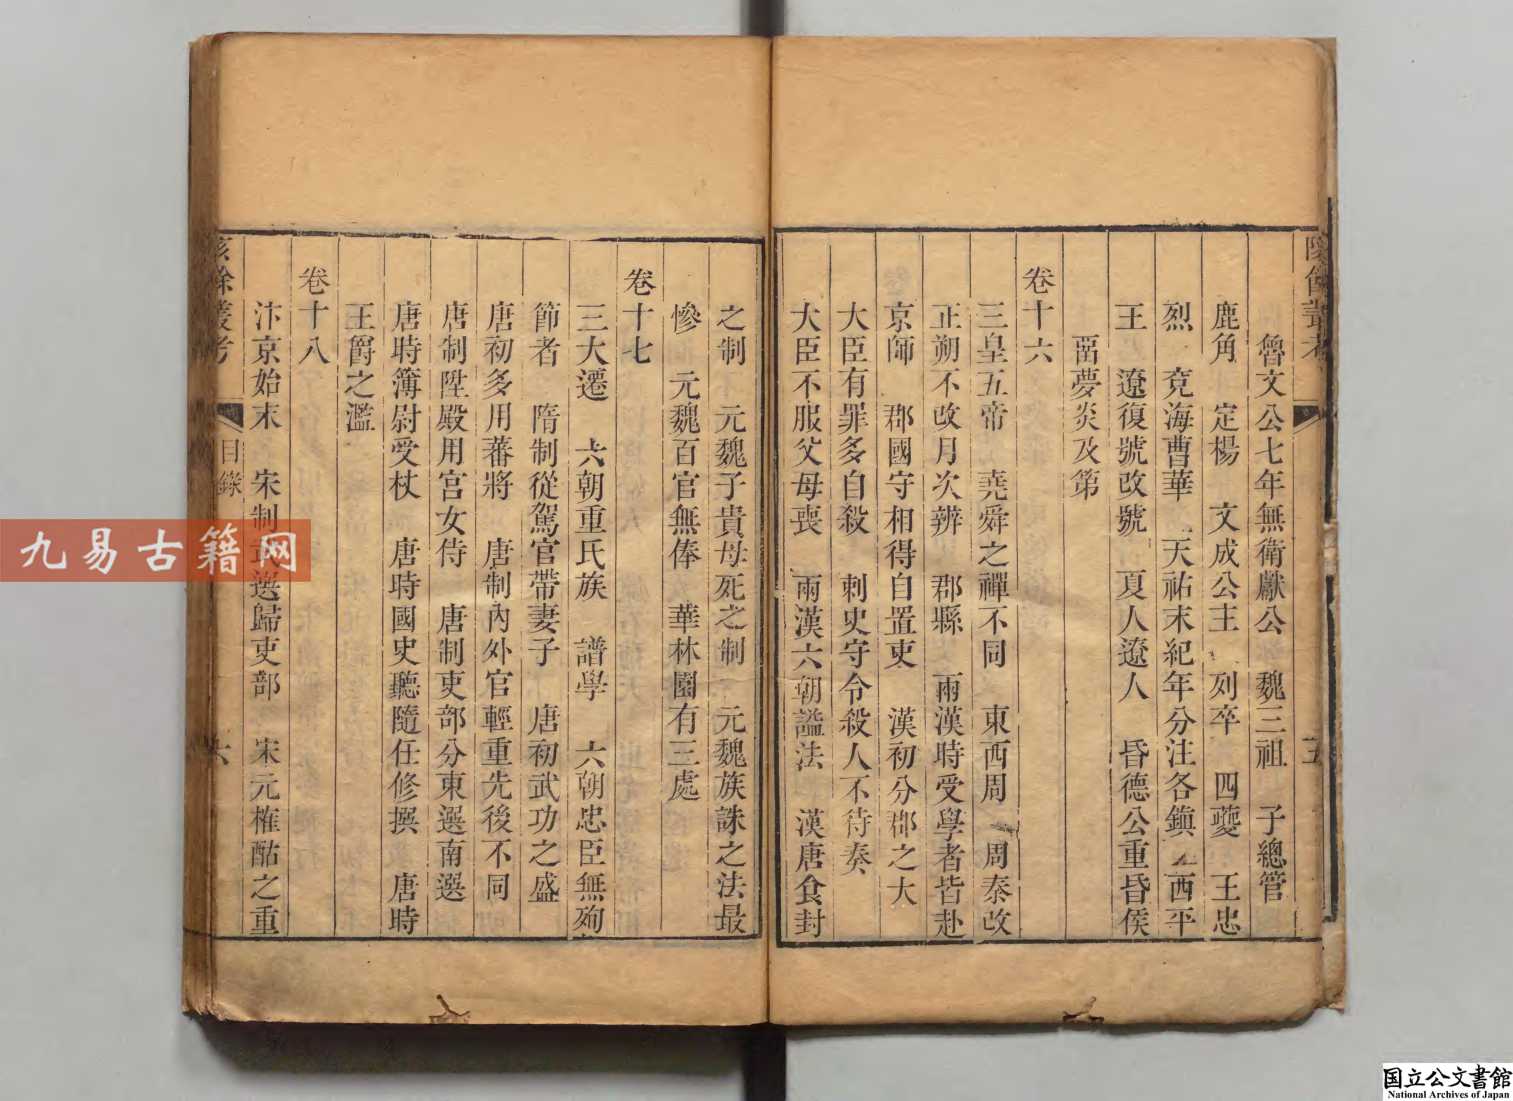 陔餘叢考
五
魯文公七年無衛獻公　魏三祖　子總管
鹿角　定楊　文成公主　列卒　四夔　王忠
烈　竞海曹華　天祐末紀年分注各鎮　西平
王　遼復號改號　夏人遼人　昏德公重昏侯
畱夢炎及第
卷十六
三皇五帝　堯舜之禪不同　東西周　周秦改
正朔不改月次辨　郡縣　兩漢時受學者皆赴
京師　郡國守相得自置吏　漢初分郡之大
大臣有罪多自殺　刺史守令殺人不待奏
大臣不服父母喪　兩漢六朝謚法　漢唐食封
之制　元魏子貴母死之制　元魏族誅之法最
慘　元魏百官無俸　華林園有三處
卷十七
三大遷　六朝重氏族　譜學　六朝忠臣無殉
節者　隋制從駕官帶妻子　唐初武功之盛
唐初多用蕃將　唐制內外官輕重先後不同
唐制陞殿用宮女侍　唐制吏部分東選南選
唐時簿尉受杖　唐時國史聽隨任修撰　唐時
王爵之濫
卷十八
汴京始末　宋制武選歸吏部　宋元榷酤之重
陔餘叢考
目錄
六
九易古籍网
国立公文書館
National Archives of Japan